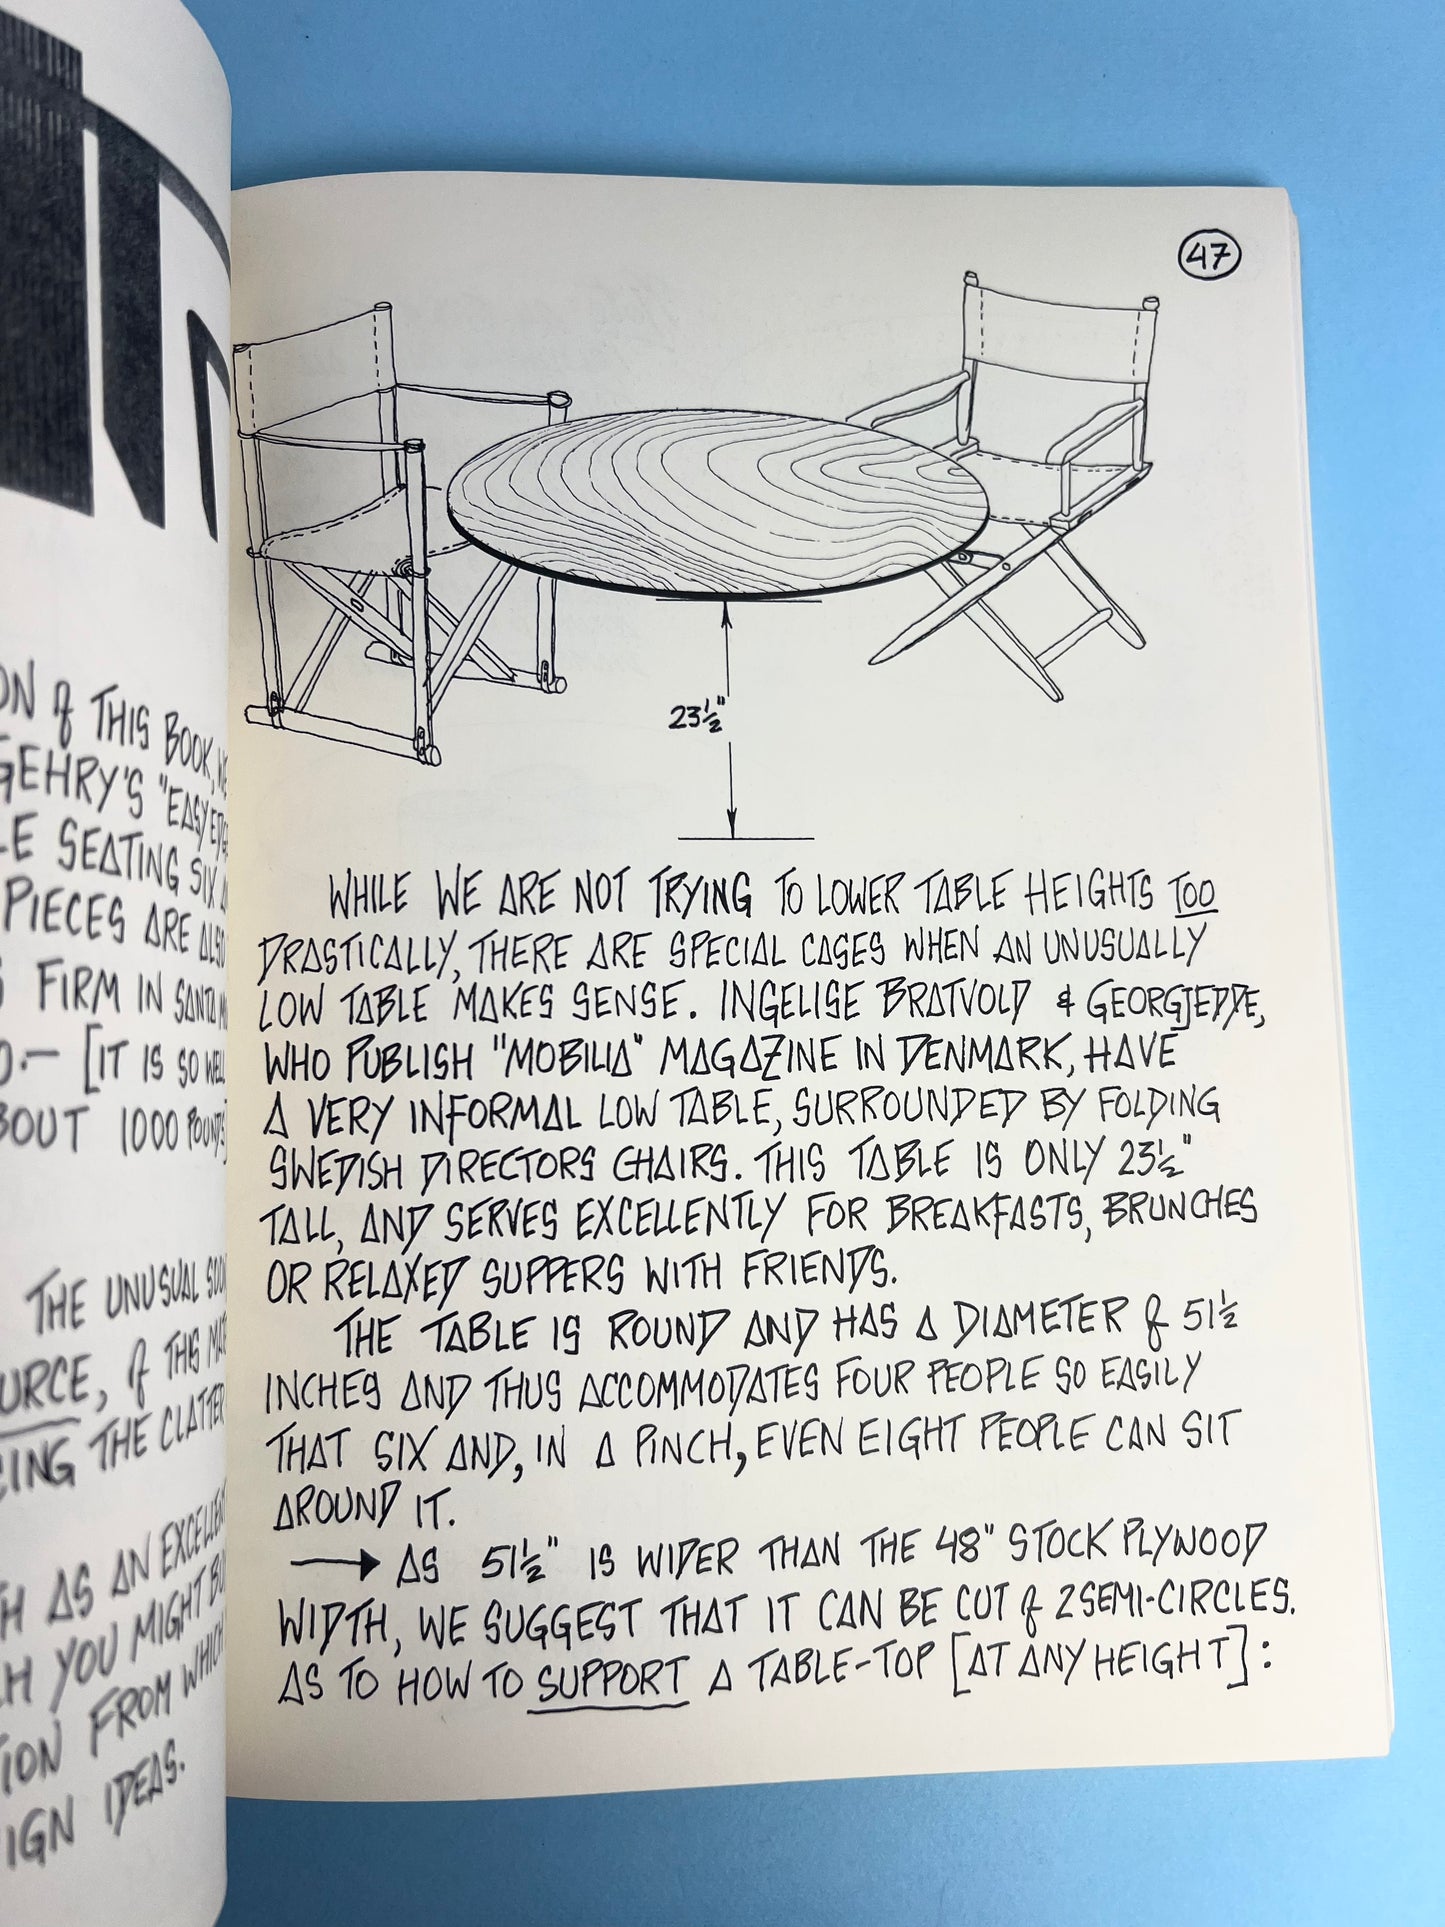 ON of THIS BOOK, WE
GEHRY'S "EASY EDGE
LE SEATING SIX
PIECES ARE ALSO
FIRM IN SANTA M
0.— [IT IS SO WELL
BOUT 1000 POUNDS]
THE UNUSUAL
URCE, of THIS
CING THE CLATTER
TH AS AN EXCELLENT
CH YOU MIGHT BUI
TION FROM WHICH
IGN IDEAS.
47
23½"
WHILE WE ARE NOT TRYING TO LOWER TABLE HEIGHTS TOO
DRASTICALLY, THERE ARE SPECIAL CASES WHEN AN UNUSUALLY
LOW TABLE MAKES SENSE. INGELISE BRATVOLD & GEORGJEDDE,
WHO PUBLISH "MOBILIA" MAGAZINE IN DENMARK, HAVE
A VERY INFORMAL LOW TABLE, SURROUNDED BY FOLDING
SWEDISH DIRECTORS CHAIRS. THIS TABLE IS ONLY 23½"
TALL, AND SERVES EXCELLENTLY FOR BREAKFASTS, BRUNCHES
OR RELAXED SUPPERS WITH FRIENDS.
THE TABLE IS ROUND AND HAS A DIAMETER of 51½
INCHES AND THUS ACCOMMODATES FOUR PEOPLE SO EASILY
THAT SIX AND, IN A PINCH, EVEN EIGHT PEOPLE CAN SIT
AROUND IT.
→ AS 51½" IS WIDER THAN THE 48" STOCK PLYWOOD
WIDTH, WE SUGGEST THAT IT CAN BE CUT of 2 SEMI-CIRCLES.
AS TO HOW TO SUPPORT A TABLE-TOP [AT ANY HEIGHT]: